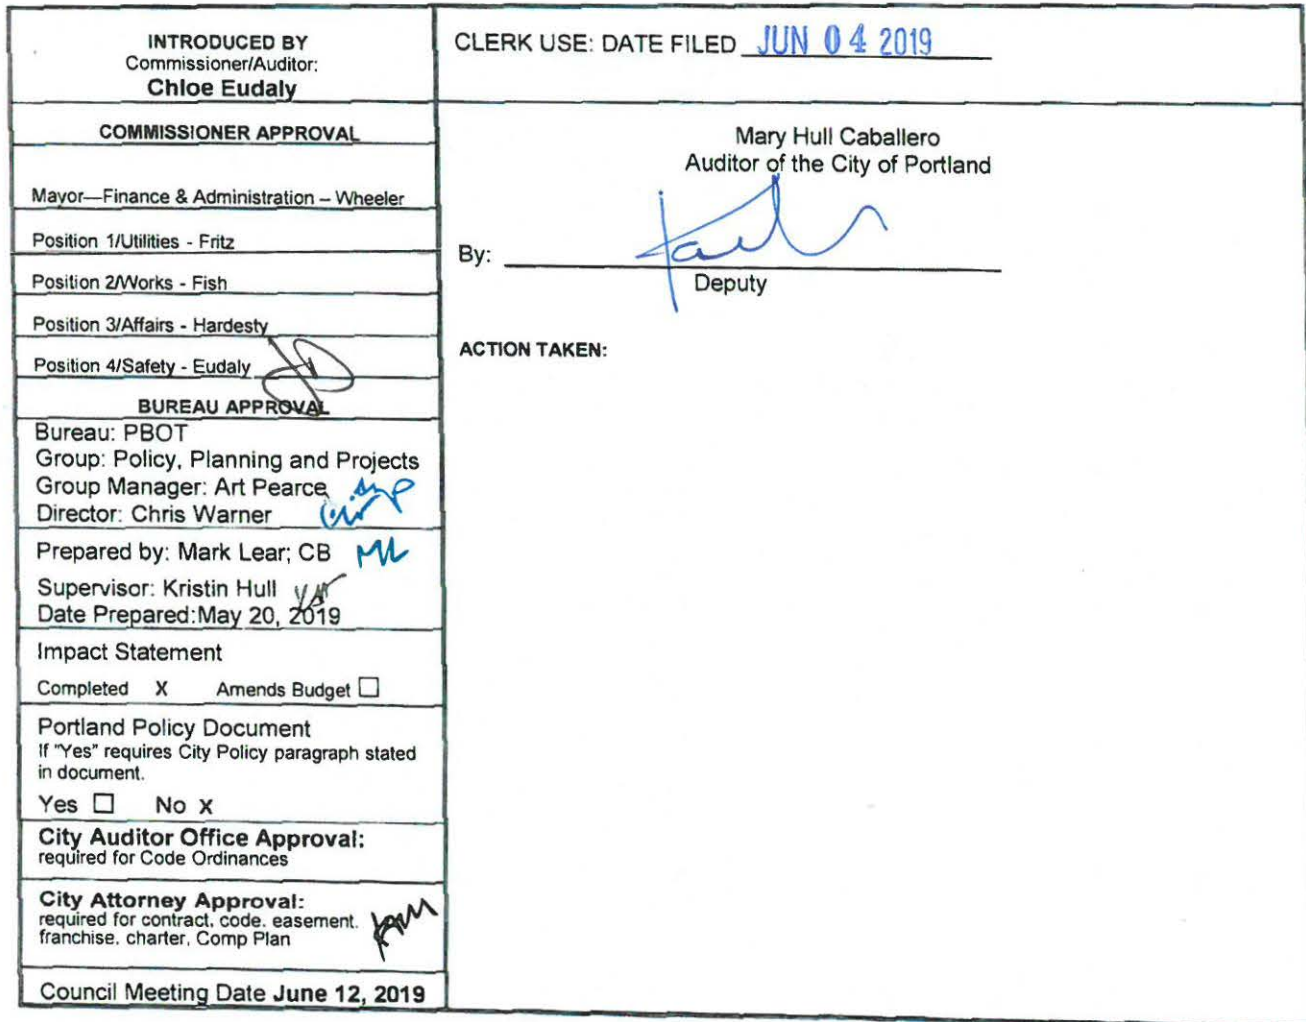 INTRODUCED BY
Commissioner/Auditor:
Chloe Eudaly
COMMISSIONER APPROVAL
Mayor—Finance & Administration – Wheeler
Position 1/Utilities - Fritz
Position 2/Works - Fish
Position 3/Affairs - Hardesty
Position 4/Safety - Eudaly
BUREAU APPROVAL
Bureau: PBOT
Group: Policy, Planning and Projects
Group Manager: Art Pearce
Director: Chris Warner
Prepared by: Mark Lear; CB ML
Supervisor: Kristin Hull
Date Prepared:May 20, 2019
Impact Statement
Completed X Amends Budget ☐
Portland Policy Document
If "Yes" requires City Policy paragraph stated
in document.
Yes ☐ No X
City Auditor Office Approval:
required for Code Ordinances
City Attorney Approval:
required for contract, code. easement.
franchise. charter, Comp Plan
Council Meeting Date June 12, 2019
CLERK USE: DATE FILED JUN 04 2019
Mary Hull Caballero
Auditor of the City of Portland
By:
Deputy
ACTION TAKEN: